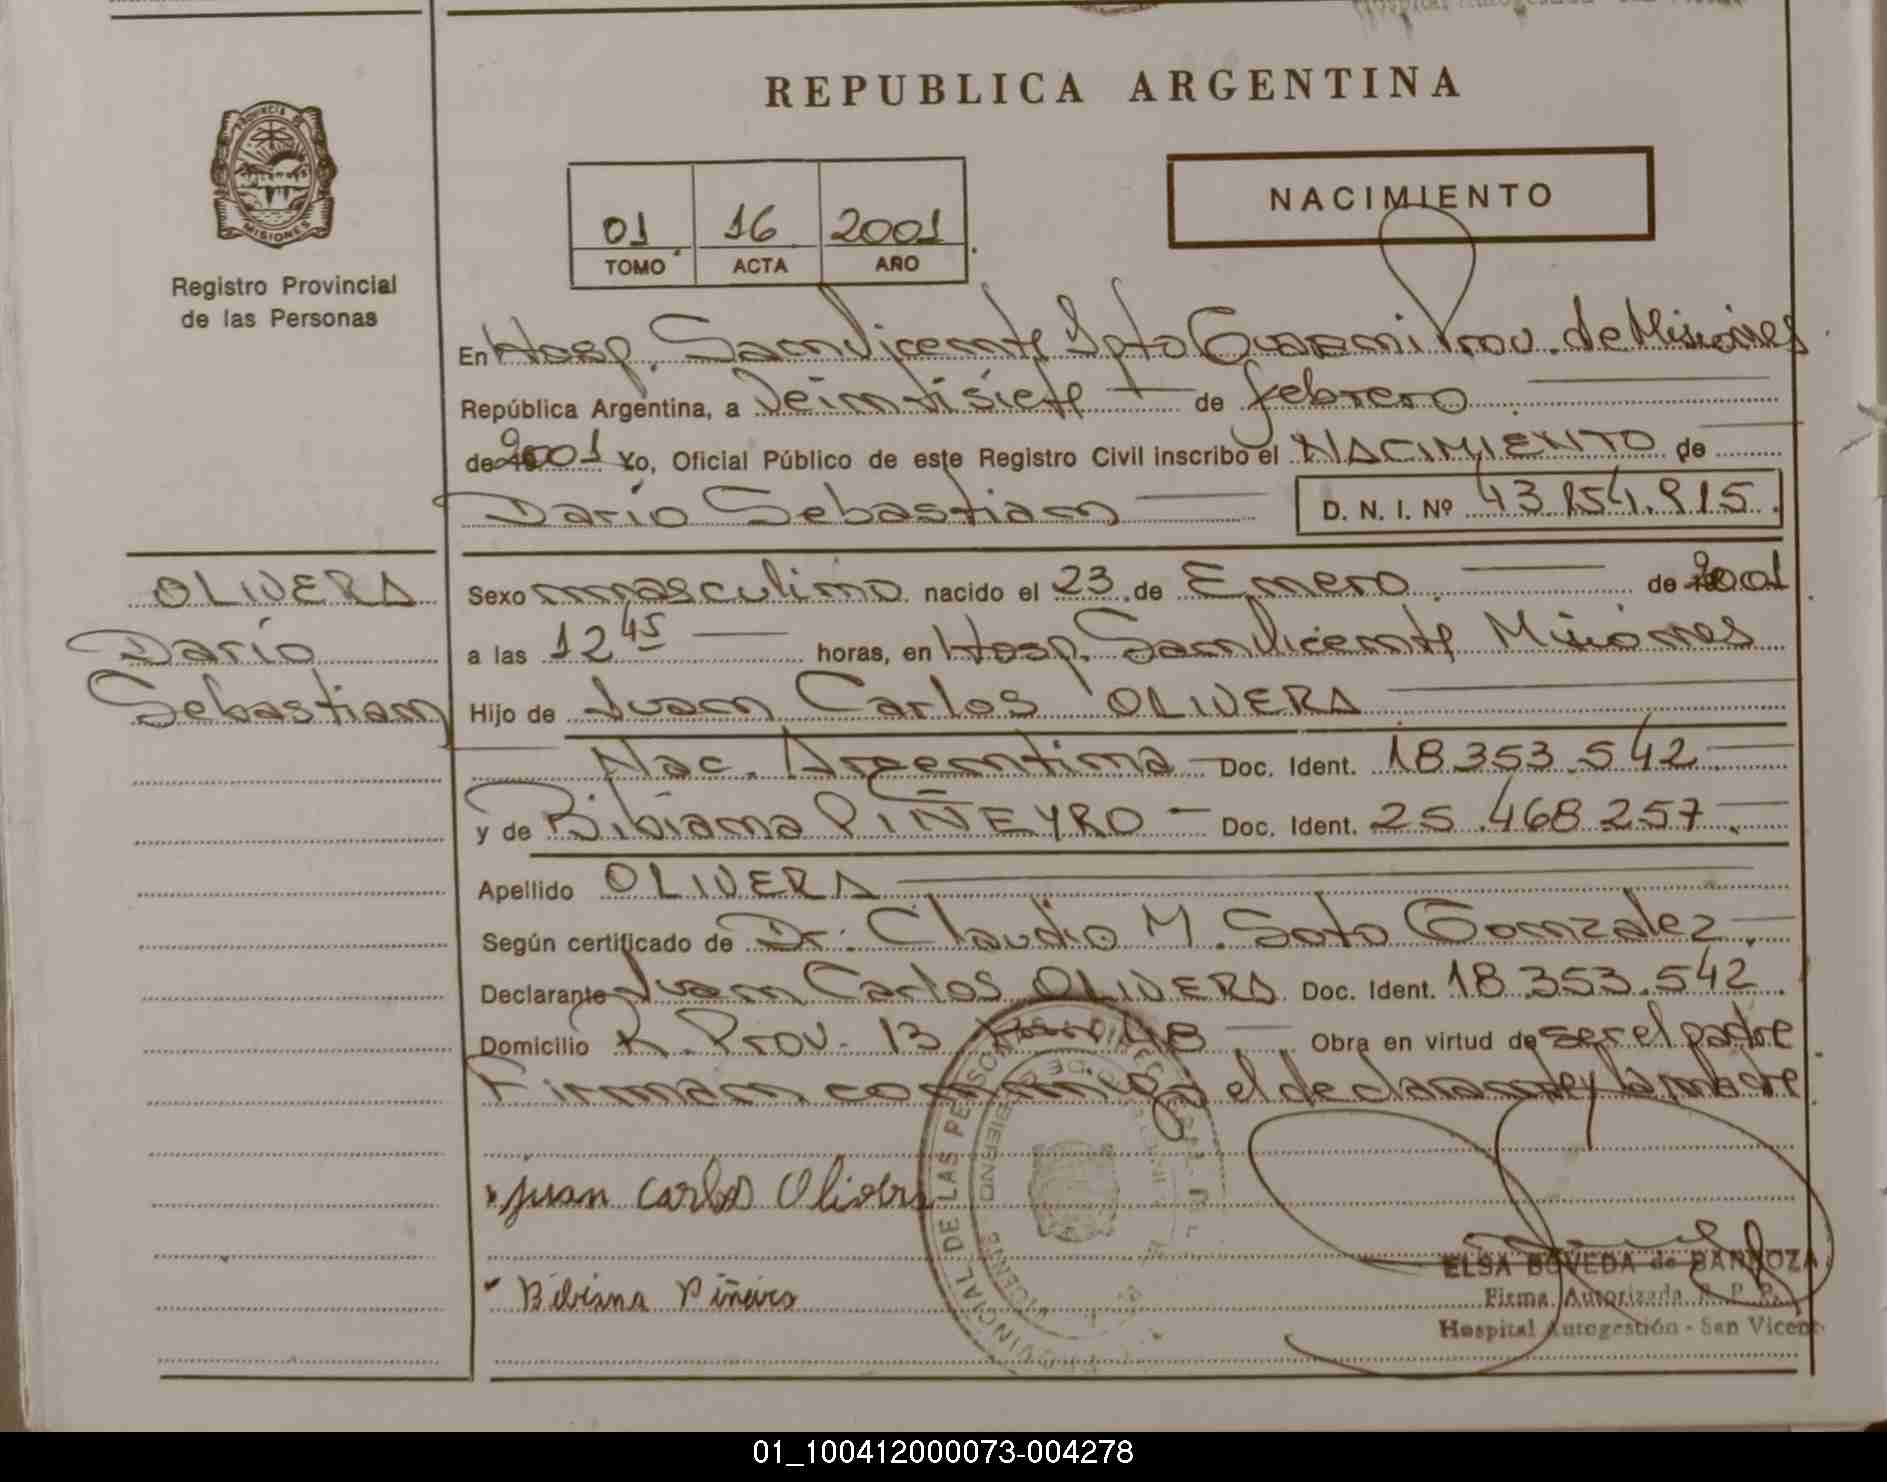 REPUBLICA ARGENTINA
PROVINCIA DE
MISIONES
Registro Provincial
de las Personas
01 16 2001
TOMO ACTA AÑO
NACIMIENTO
En Hosp. San Vicente Dpto Guarani Prov. de Misiones
República Argentina, a Veintisiete de febrero
de 2001 Yo, Oficial Público de este Registro Civil inscribo el NACIMIENTO de
Dario Sebastian D. N. I. Nº 43.154.915
OLIVERA
Dario
Sebastian
Sexo masculino nacido el 23 de Enero de 2001
a las 12 45 horas, en Hosp. San Vicente Misiones
Hijo de Juan Carlos OLIVERA
Nac. Argentina Doc. Ident. 18.353.542
y de Bibiana PIÑEYRO Doc. Ident. 25.468.257
Apellido OLIVERA
Según certificado de Dr. Claudio M. Soto Gonzalez
Declarante Juan Carlos OLIVERA Doc. Ident. 18.353.542
Domicilio R. Prov. 13 Obra en virtud de ser el padre
Firman conmigo el declarante y la madre
Juan Carlos Olivera
Bibiana Piñeiro
PROVINCIAL DE LAS PERSONAS
ELSA BOVEDA de BARBOZA
Firma Autorizada R. P. P.
Hospital Autogestión - San Vicente
01_100412000073-004278